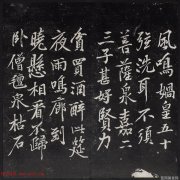 風鳴媧皇五十
弦洗耳不須
菩薩泉嘉二
三子甚好賢力
貧買酒醉此筵
夜雨鳴廊到
曉懸相看不歸
臥僧氈泉枯石